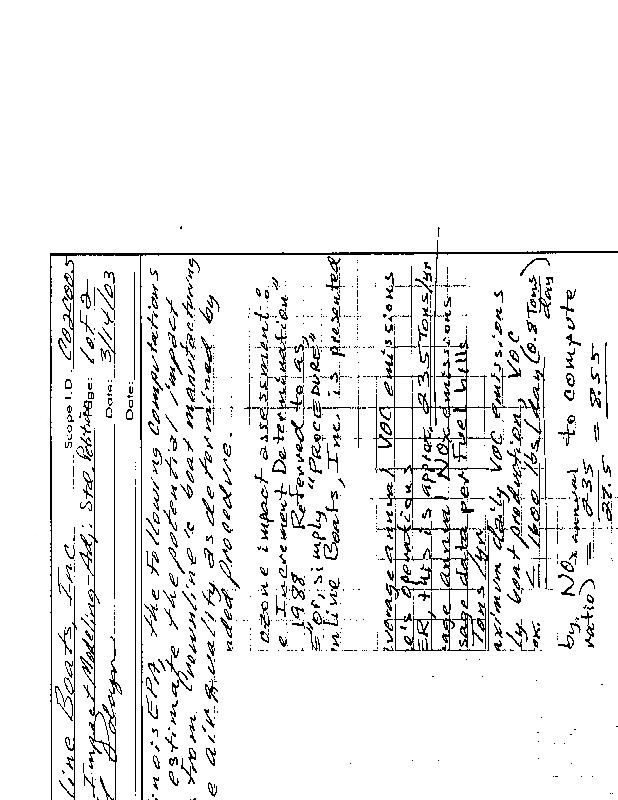 line Boats, Inc Scope I.D C022005
Impact Modeling-Adj. Std. Petition Page: 1 of 2
Date: 3/14/03
Date:
nois EPA, the following computations
estimate the potential impact
from Crownline's boat manufacturing
e air quality as determined by
nded procedure.
ozone impact assessment:
e Increment Determination"
1988 Referred to as
or, simply "PROCEDURE"
nline Boats, Inc. is presented
verage annual VOC emissions
e's operations
ER, this is approx. 235 Tons/yr
age annual NOx emissions
sage data per fuel bills
Tons/yr
aximum daily VOC emissions
ly boat production, VOC
≤ 1600 lbs/day (0.8 Tons/day)
by NOx annual to compute
ratio) = 235 = 8.55
27.5